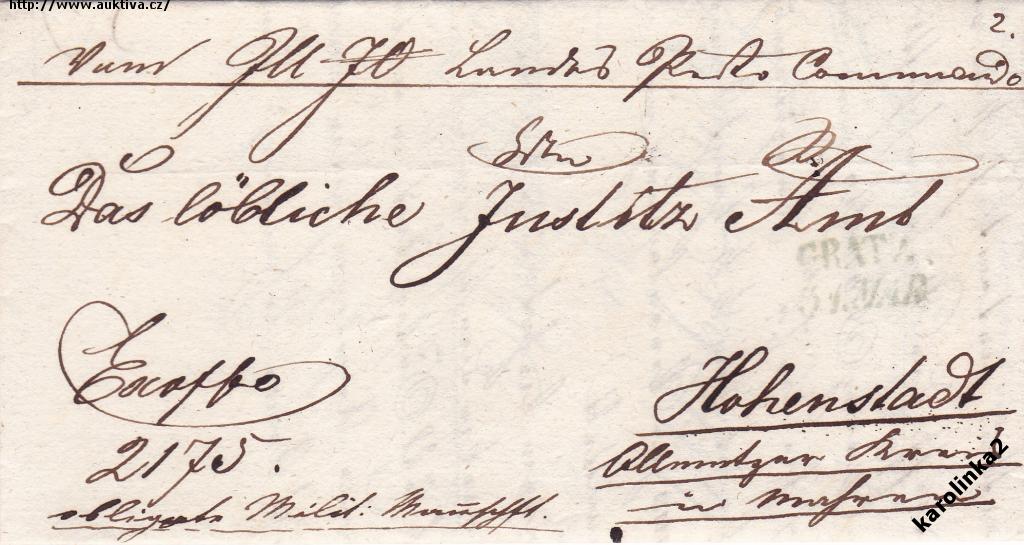 http://www.auktiva.cz/
2.
Vom Ill. I. Ö. Landes Commando
Das löbliche Justitz Amt
GRATZ.
31. MAR
Exoffo
2175.
obligate Milit: Mannschft.
Hohenstadt
Ollmutzer Kreis
in Mähren
karolinka2